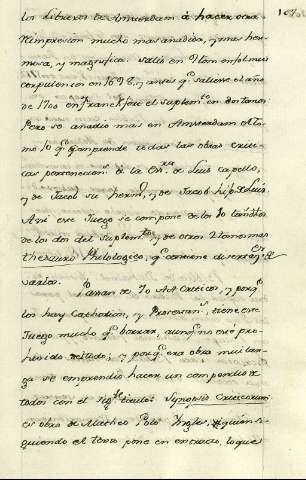 los Libreros de Amsterdam à hacer otra
Reimpresion mucho mas añadida, y mas her-
mosa, y magnifica. salio en 9 tom. en fol. mui
corpulentos en 1698, y antes qe. saliese el año
de 1701 en Franckfort el suplemto. en dos tomos
Pero se añadio mas en Amsterdam el to-
mo 10 qe. comprende todas las obras Criti-
cas de Luis Capello,
y de Jacob su hermo. y de Jacob hijo de Luis.
Assi este Juego se compone de los 10
de los dos del Suplemto. y de otros 2 tomos mas
thesauro Philologico, qe. contiene
varios.
Passan de 70 AA Criticos, y porqe.
los hay Catholicos, y Protestans., tiene este
Juego mucho qe. borrar, aunqe. no esté pro-
hibido y porqe. era obra mui lar-
ga se emprendio hacer un compendio de
todos con el sigte. titulo: Synopsis Criticorum
es obra de Matheo Polo Ingles, siguien-
quiendo el texto pone en extracto, lo que